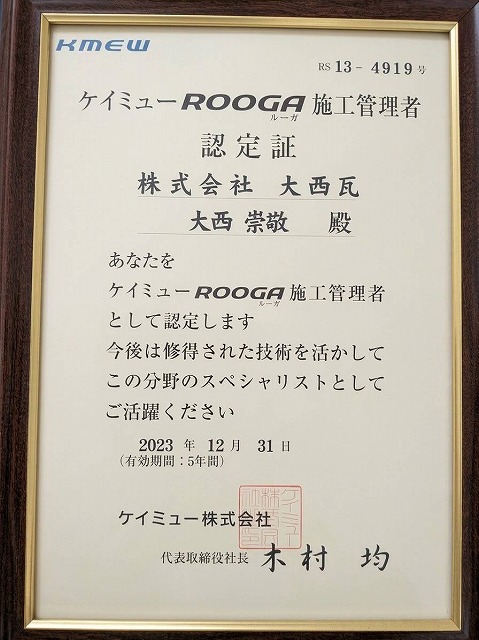 KMEW
RS 13-4919号
ケイミューROOGA施工管理者
ルーガ
認定証
株式会社 大西瓦
大西 崇敬 殿
あなたを
ケイミューROOGA施工管理者
ルーガ
として認定します
今後は修得された技術を活かして
この分野のスペシャリストとして
ご活躍ください
2023 年 12 月 31 日
(有効期間:5年間)
ケイミュー株式会社
代表取締役社長 木村 均